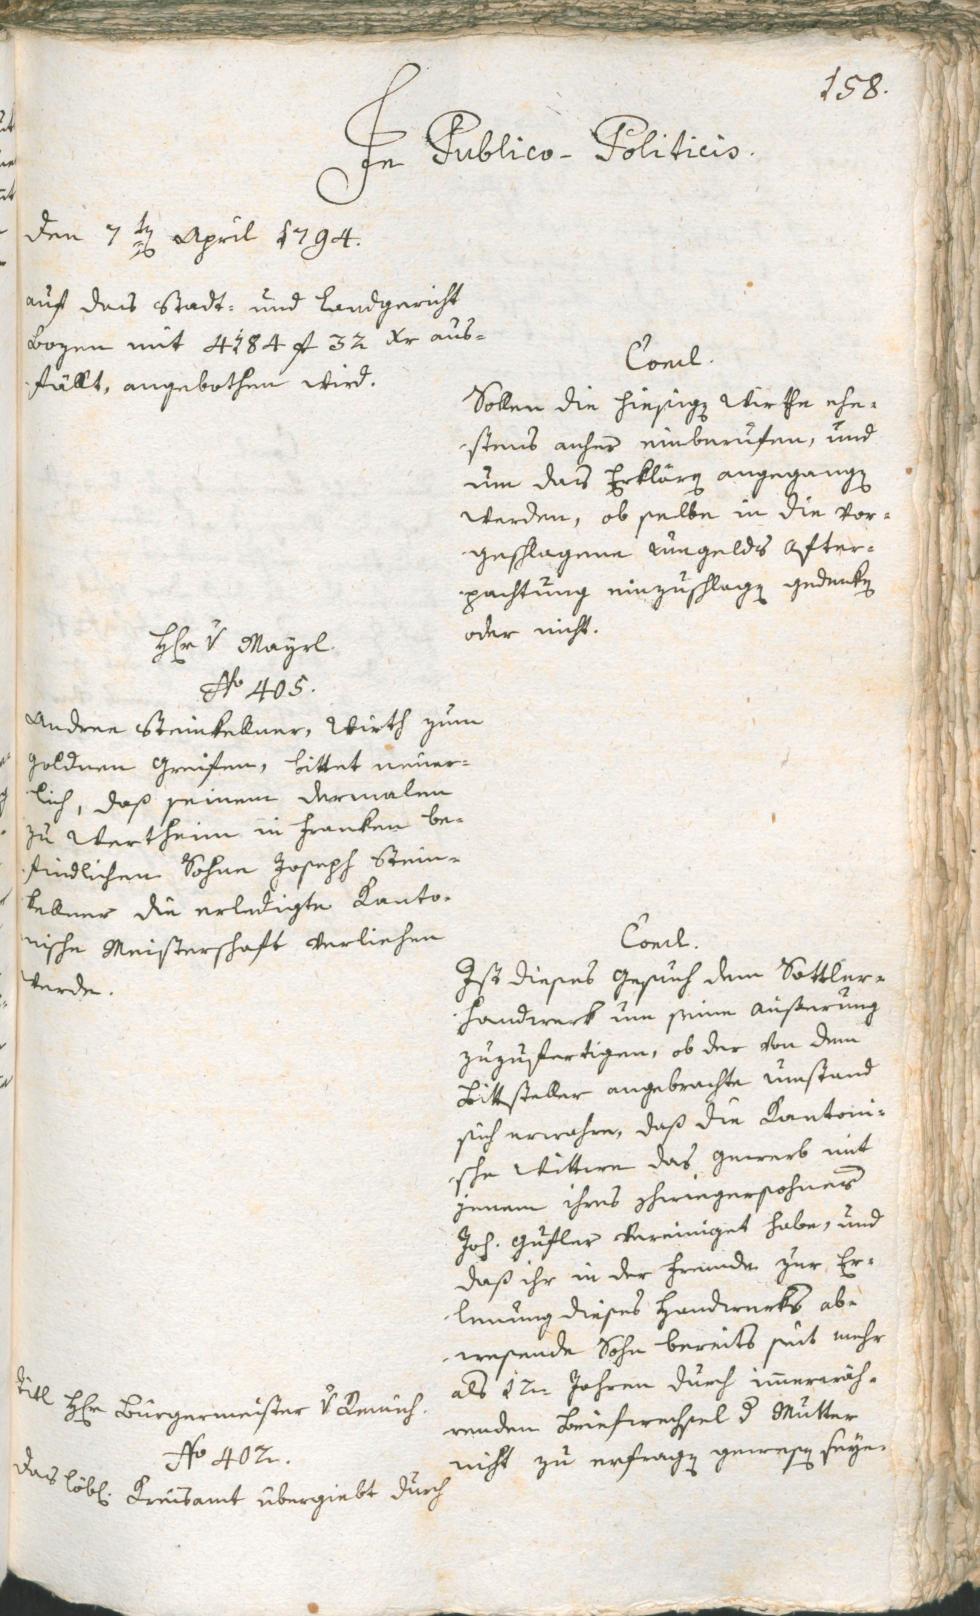 158.
In Publico-Politicis.
den 7ten April 1794.
auf das Stadt- und Landgericht
Bozen mit 4184 f 32 xr aus-
fällt, angebothen wird.
Concl.
Sollen die hiesigen Wirthe ehe-
stens anher einberufen, und
um das Erklären angegangen
werden, ob selbe in die vor-
geschlagene Umgelds After-
pachtung einzuschlagen gedenken
oder nicht.
Hr v Mayrl.
No 405.
Andree Steinkellner, Wirth zum
goldnen Greifen, bittet neuer-
lich, daß seinem dermalen
zu Wertheim in Franken be-
findlichen Sohne Joseph Stein-
kellner die erledigte Kanto-
nische Meisterschaft verliehen
werde.
Concl.
Ist dieses Gesuch dem Sattler-
handwerk um seine Äußerung
zuzufertigen, ob der von dem
Bittsteller angebrachte Umstand
sich erwahre, daß die Kantoni-
sche Wittwe das Gewerb mit
jenem ihres Schwiegersohnes
Joh. Gufler vereiniget habe, und
daß ihr in der Fremde zur Er-
lernung dieses Handwerks ab-
wesende Sohn bereits seit mehr
als 12 Jahren durch immerwäh-
renden Briefwechsel d Mutter
nicht zu erfragen gewesen seye.
Titl Hr Bürgermeister v
No 402.
Das löbl. Kreisamt übergiebt durch